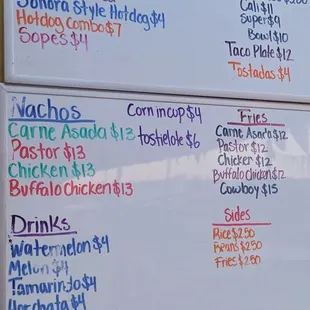 Sonora Style Hotdog $4
Hotdog Combo $7
Sopes $4
Cali $11
Super $9
Bowl $10
Taco Plate $12
Tostadas $4
Nachos
Carne Asada $13
Pastor $13
Chicken $13
Buffalo Chicken $13
Corn in cup $4
toshelote $6
Fries
Carne Asada $12
Pastor $12
Chicken $12
Buffalo Chicken $12
Cowboy $15
Drinks
Watermelon $4
Melon $4
Tamarindo $4
Horchata $4
Sides
Rice $2.50
Beans $2.50
Fries $2.50